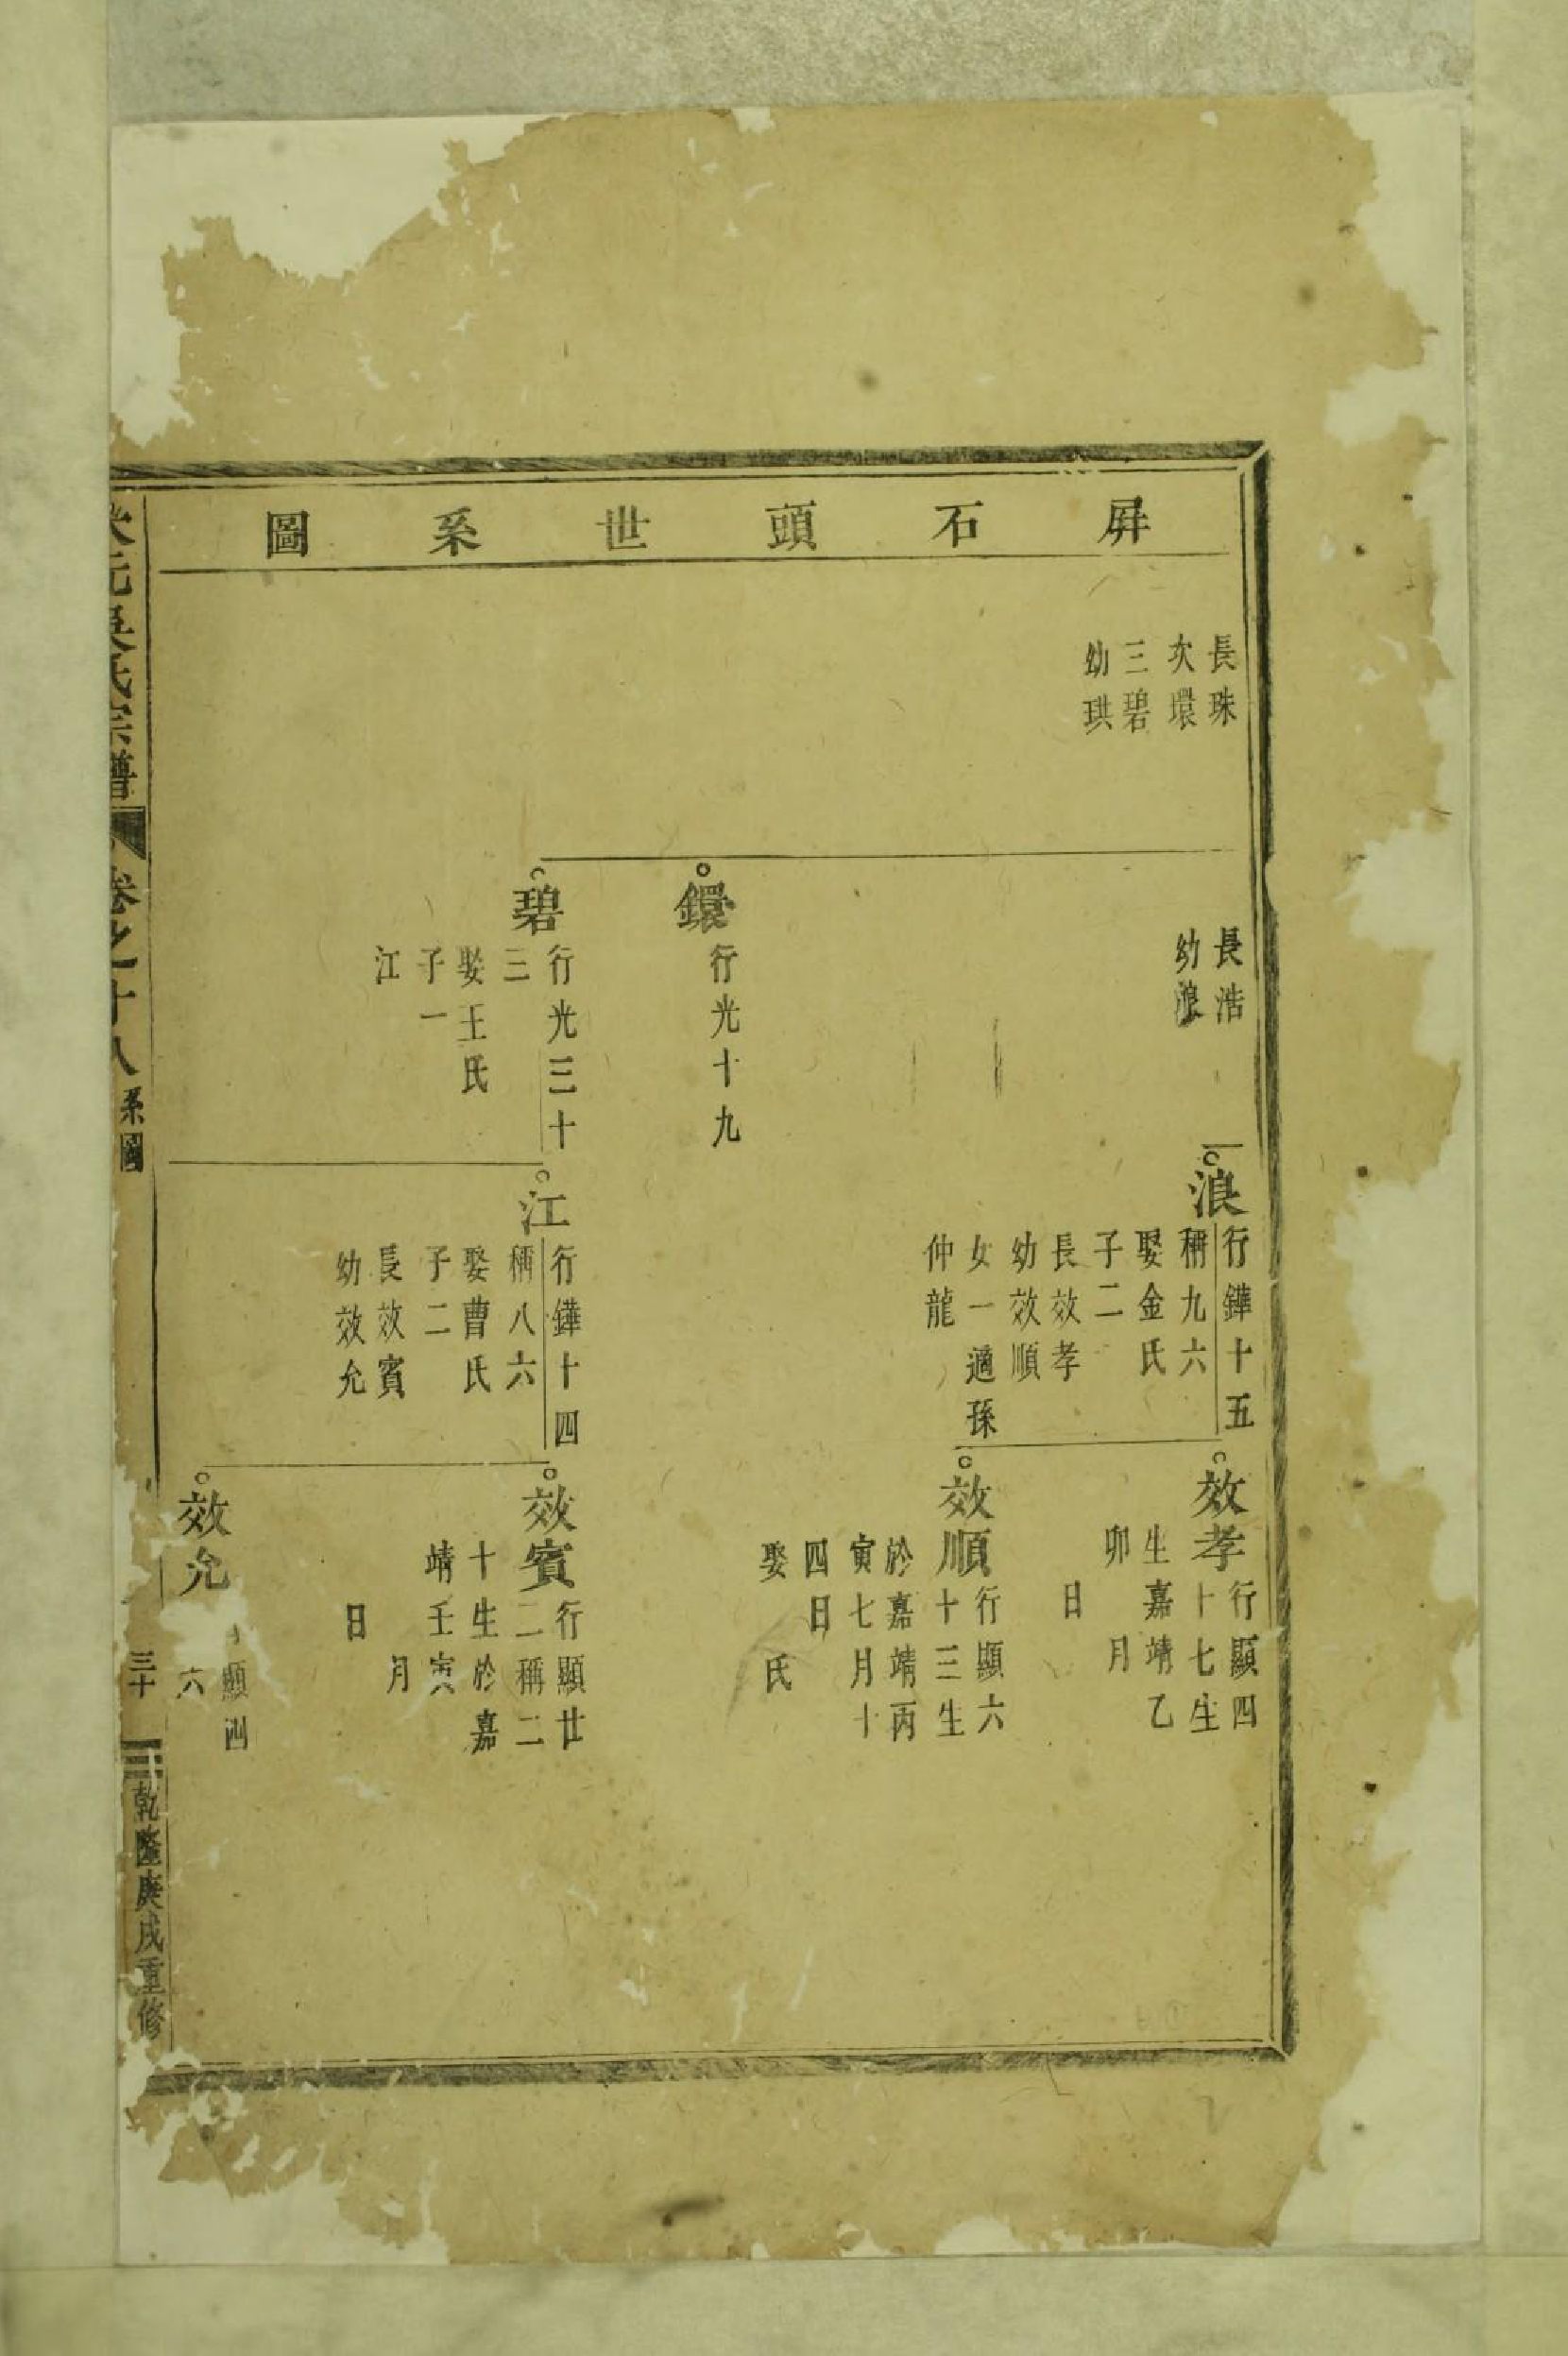 屏石頭世系圖
長珠
次環
三碧
幼珙
長浩
幼浪
鐶
行光十九
碧
行光三十
三
娶王氏
子一
江
浪
行鏵十五
稱九六
娶金氏
子二
長效孝
幼效順
女一適孫
仲龍
江
行鏵十四
稱八六
娶曹氏
子二
長效賓
幼效允
效孝
行顯四
十七生
生嘉靖乙
卯 月
日
效順
行顯六
十三生
於嘉靖丙
寅七月十
四日
娶 氏
效賓
行顯廿
二稱二
十生於嘉
靖壬寅
月
日
效允
顯四
六
吳氏宗譜 卷之十八 系圖 三十 乾隆庚戌重修